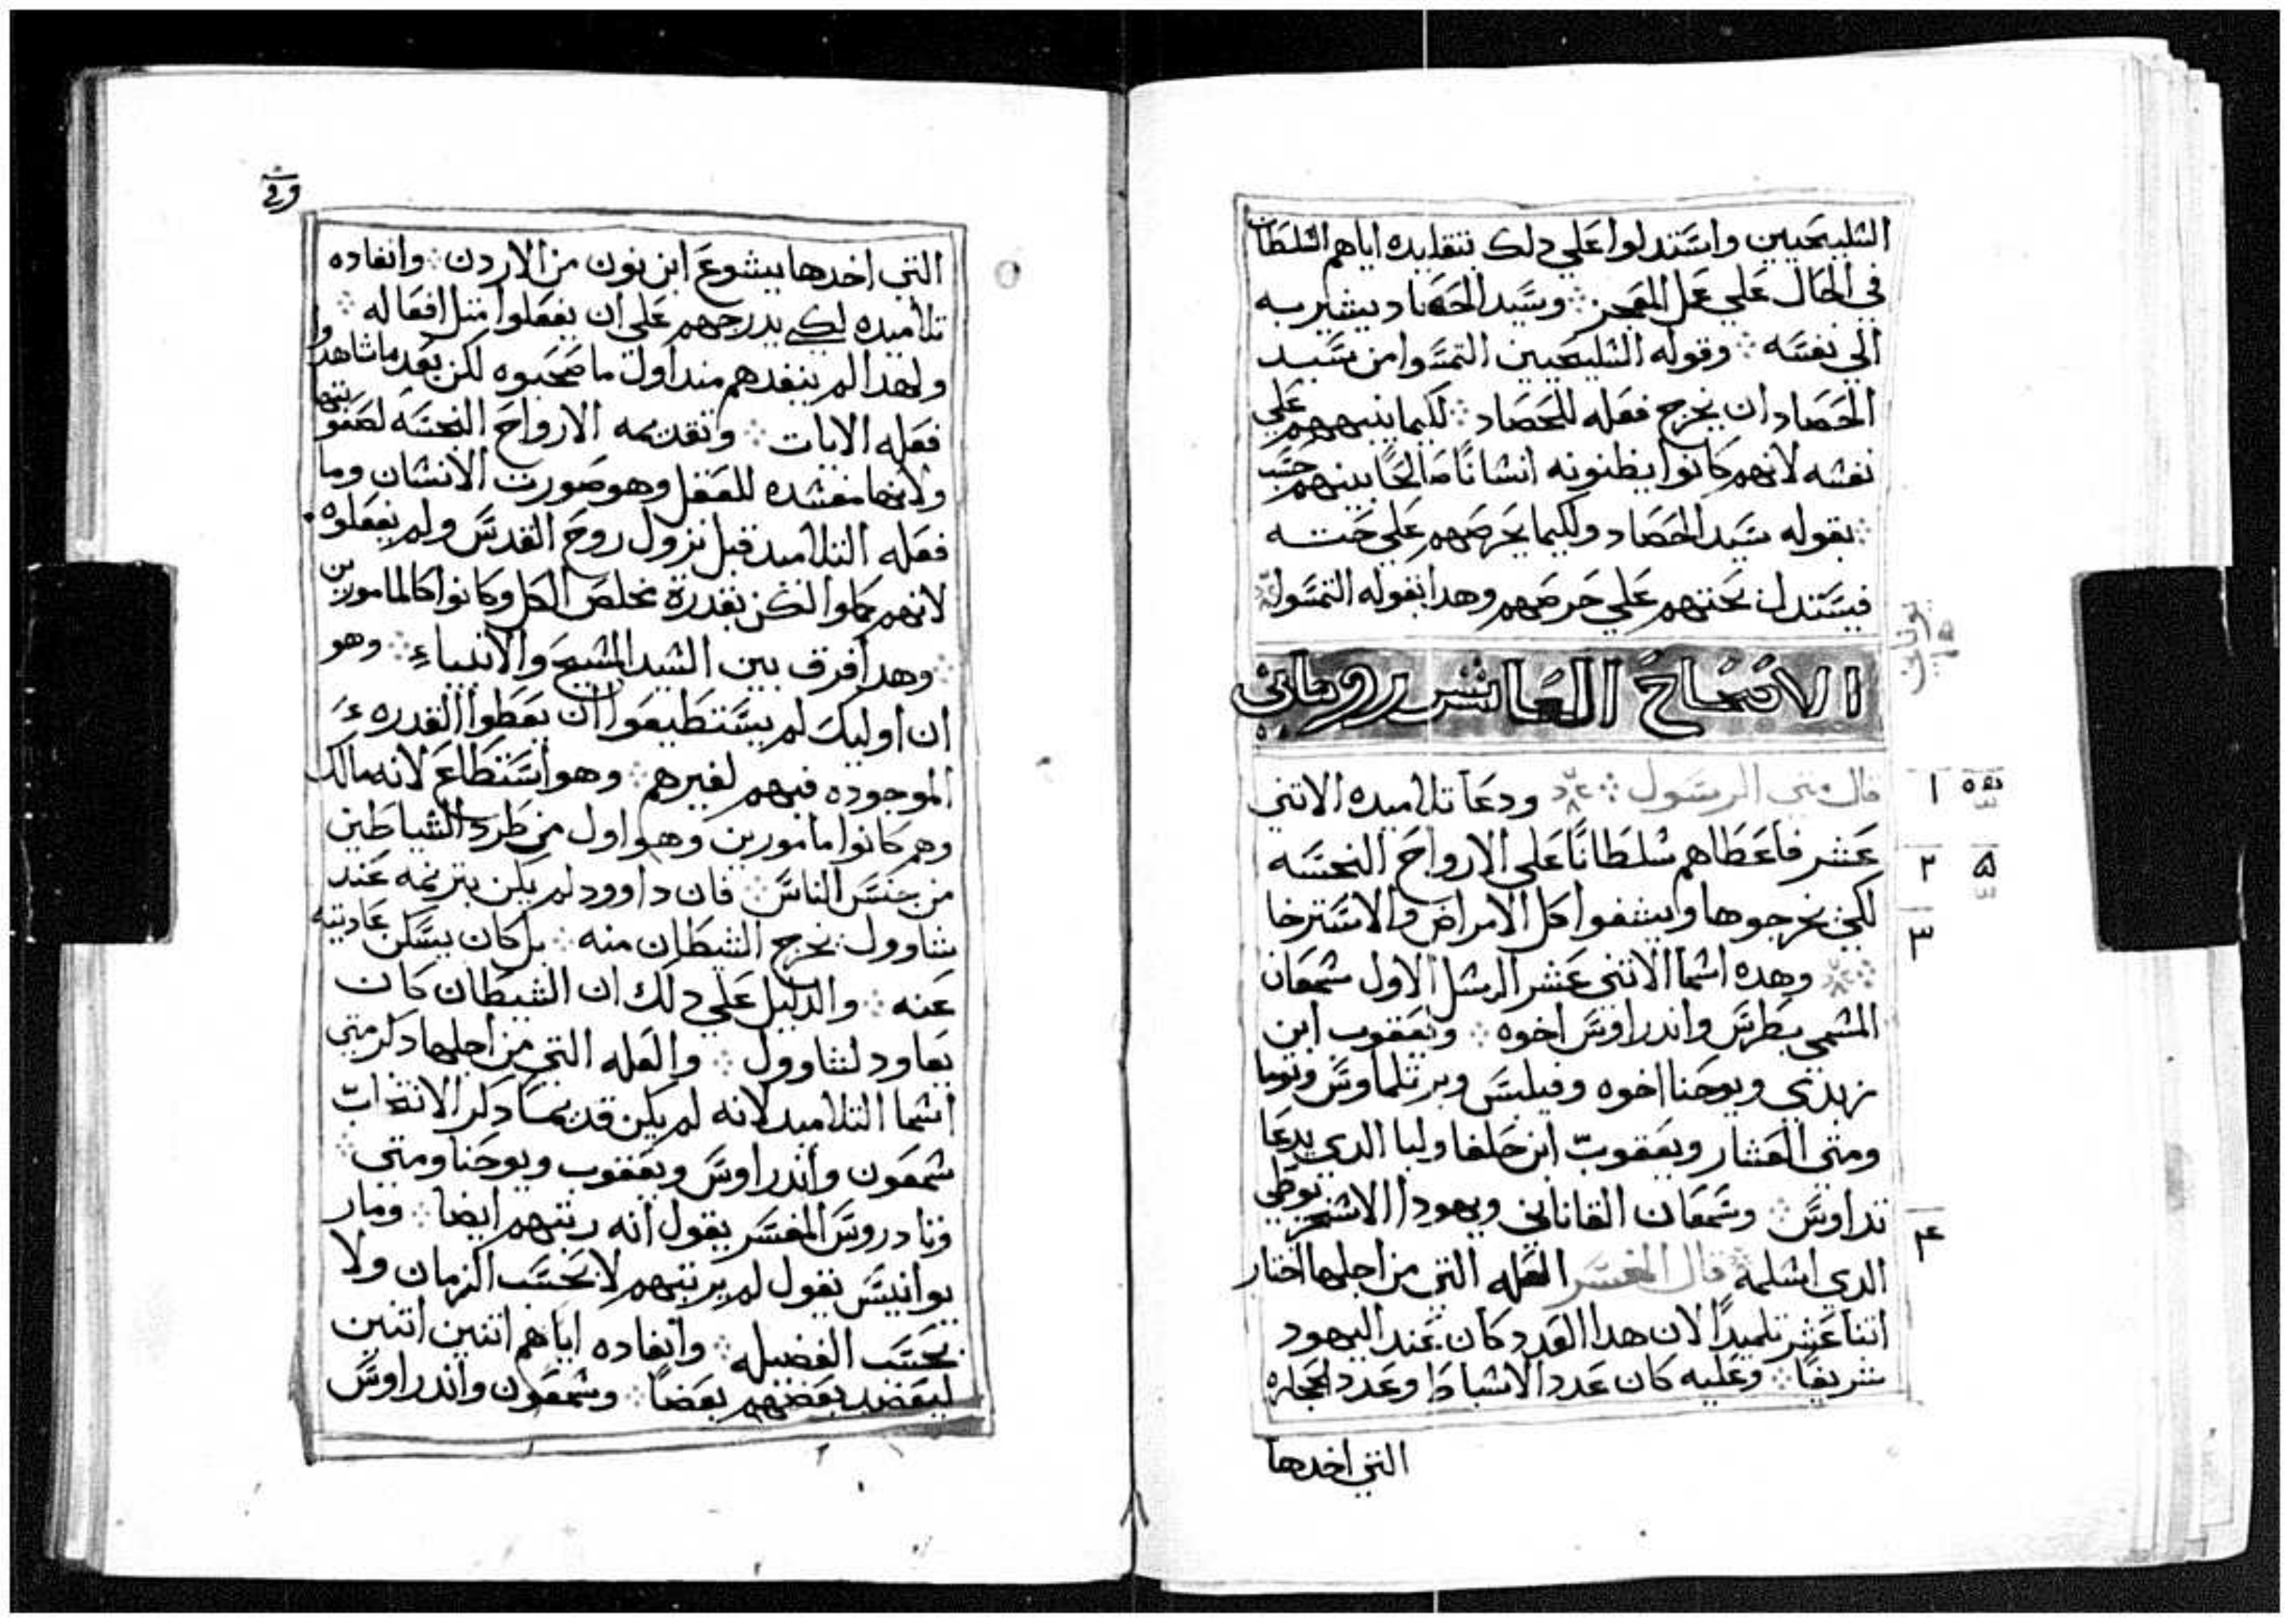 الشليحيين واستدلوا علي دلك بتقليده اياهم الشلطان
في الحال علي عمل المعجز ܀ وسيد الحصاد يشير به
الي نفسه ܀ وقوله الشليحيين التمسوا من سيد
الحصاد ان يخرج فعله للحصاد ܀ لكيما ينبههم علي
نفشه لانهم كانوا يظنونه انشانًا صالحًا بينهم حسب
܀ بقوله سيد الحصاد ولكيما يحرصهم علي حته
فيستدل بحتهم علي حرصهم وهدا بقوله التمسوا
الاصحاح العاشر روماني
يوناني
قال متي الرسول ܀ ودعا تلاميده الاتني
عشر فاعطاهم شلطانًا علي الارواح النجسه
لكي يخرجوها ويشفوا كل الامراض والاسترخا
܀ وهده اشما الاتني عشر الرشل الاول شمعان
المشمي بطرس واندراوس اخوه ܀ ويعقوب ابن
زبدي ويوحنا اخوه وفيلبس وبرتلماوس وتوما
ومتي العشار ويعقوب ابن حلفا ولبا الدي يدعا
تداوس ܀ وسمعان القاناني ويهودا الاشخريوطي
الدي اشلمه ܀ قال المفسر العله التي من اجلها اختار
اتنا عشر تلميدًا لان هدا العدد كان عند اليهود
شريفًا ܀ وعليه كان عدد الاشباط وعدد الحجاره
التي اخدها
١
٢
٣
٤
التي اخدها يشوع ابن نون من الاردن ܀ وانفاده
تلاميده لكي يدرجهم علي ان يفعلوا متل افعاله ܀
ولهدا لم ينفدهم مند اول ما صحبوه لكن بعد ما شاهدوا
فعله الايات ܀ وتقديمه الارواح النجسه لصعوبتها
ولانها مفشده للعقل وهو صورت الانشان وما
فعله التلاميد قبل نزول روح القدس ولم يفعلوه
لانهم كملوا لكن بقدرة مخلص الكل وكانوا كالمامورين
܀ وهدا فرق بين الشيد المشيح والانبياء ܀ وهو
ان اوليك لم يستطيعوا ان يعطوا القدره
الموجوده فيهم لغيرهم ܀ وهو استطاع لانه مالك
وهم كانوا مامورين وهو اول من طرد الشياطين
من جنس الناس ܀ فان داوود لم يكن بترنمه عند
شاوول يخرج الشيطان منه ܀ بل كان يسكن عاديته
عنه ܀ والدليل علي دلك ان الشيطان كان
يعاود لشاوول ܀ والعله التي من اجلها دكر متي
اشما التلاميد لانه لم يكن قديما دكر الانتخاب
شمعون واندراوس ويعقوب ويوحنا ومتي ܀
وتادروس المفسر يقول انه رتبهم ايضا ܀ ومار
يوانيس يقول لم يرتبهم لا بحسب الزمان ولا
بحسب الفضيله ܀ وانفاده اياهم اتنين اتنين
ليعضد بعضهم بعضًا ܀ وشمعون واندراوس